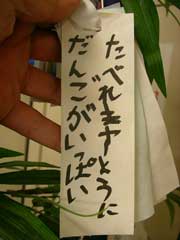 たべれますように
だんごがいっぱい